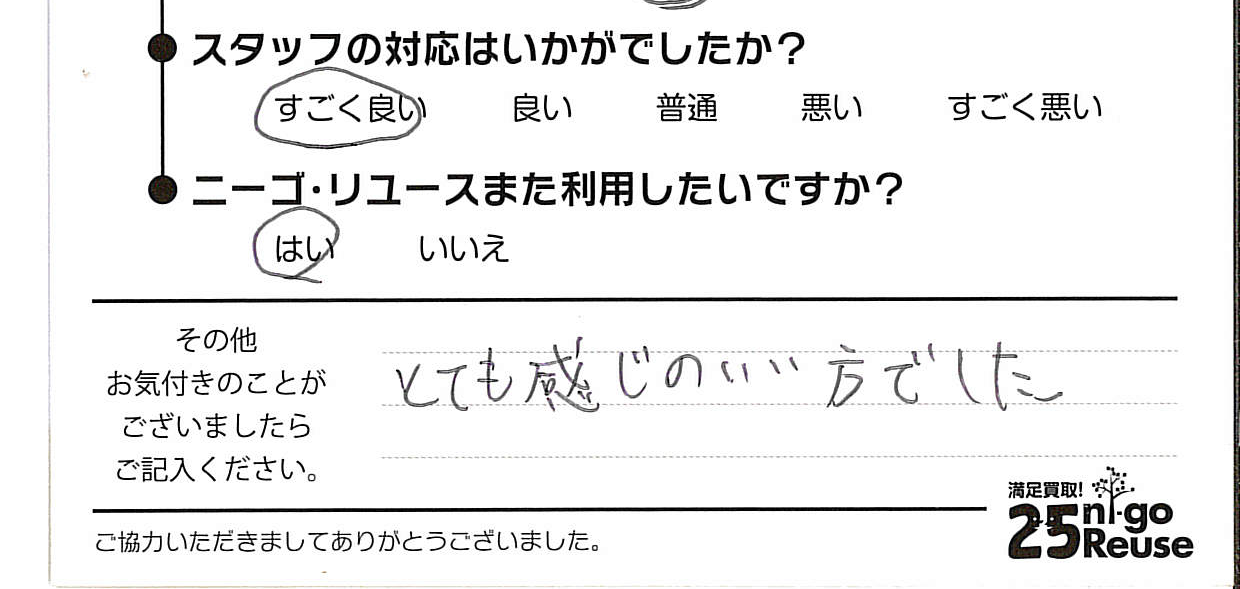 スタッフの対応はいかがでしたか？
すごく良い 良い 普通 悪い すごく悪い
ニーゴ・リユースまた利用したいですか？
はい いいえ
その他
お気付きのことが
ございましたら
ご記入ください。
とても感じのいい方でした
満足買取!
25 ni-go
Reuse
ご協力いただきましてありがとうございました。